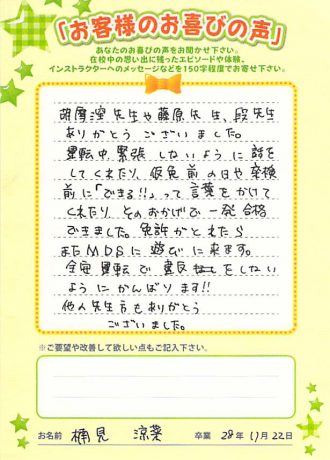 「お客様のお喜びの声」
あなたのお喜びの声をお聞かせ下さい。
在校中の思い出に残ったエピソードや体験、
インストラクターへのメッセージなどを150字程度でお寄せ下さい。
先生や藤原先生、段先生
ありがとうございました。
運転中緊張しないように話を
してくれたり、仮免前の日や卒検
前に「できる!!」って言葉をかけて
くれたり、そのおかげで一発合格
できました。免許がとれたら
またMDSに遊びに来ます。
安全運転で違反をしない
ようにがんばります!!
他人先生方もありがとう
ございました。
※ご要望や改善して欲しい点もご記入下さい。
お名前 見 涼葉 卒業 28年11月22日